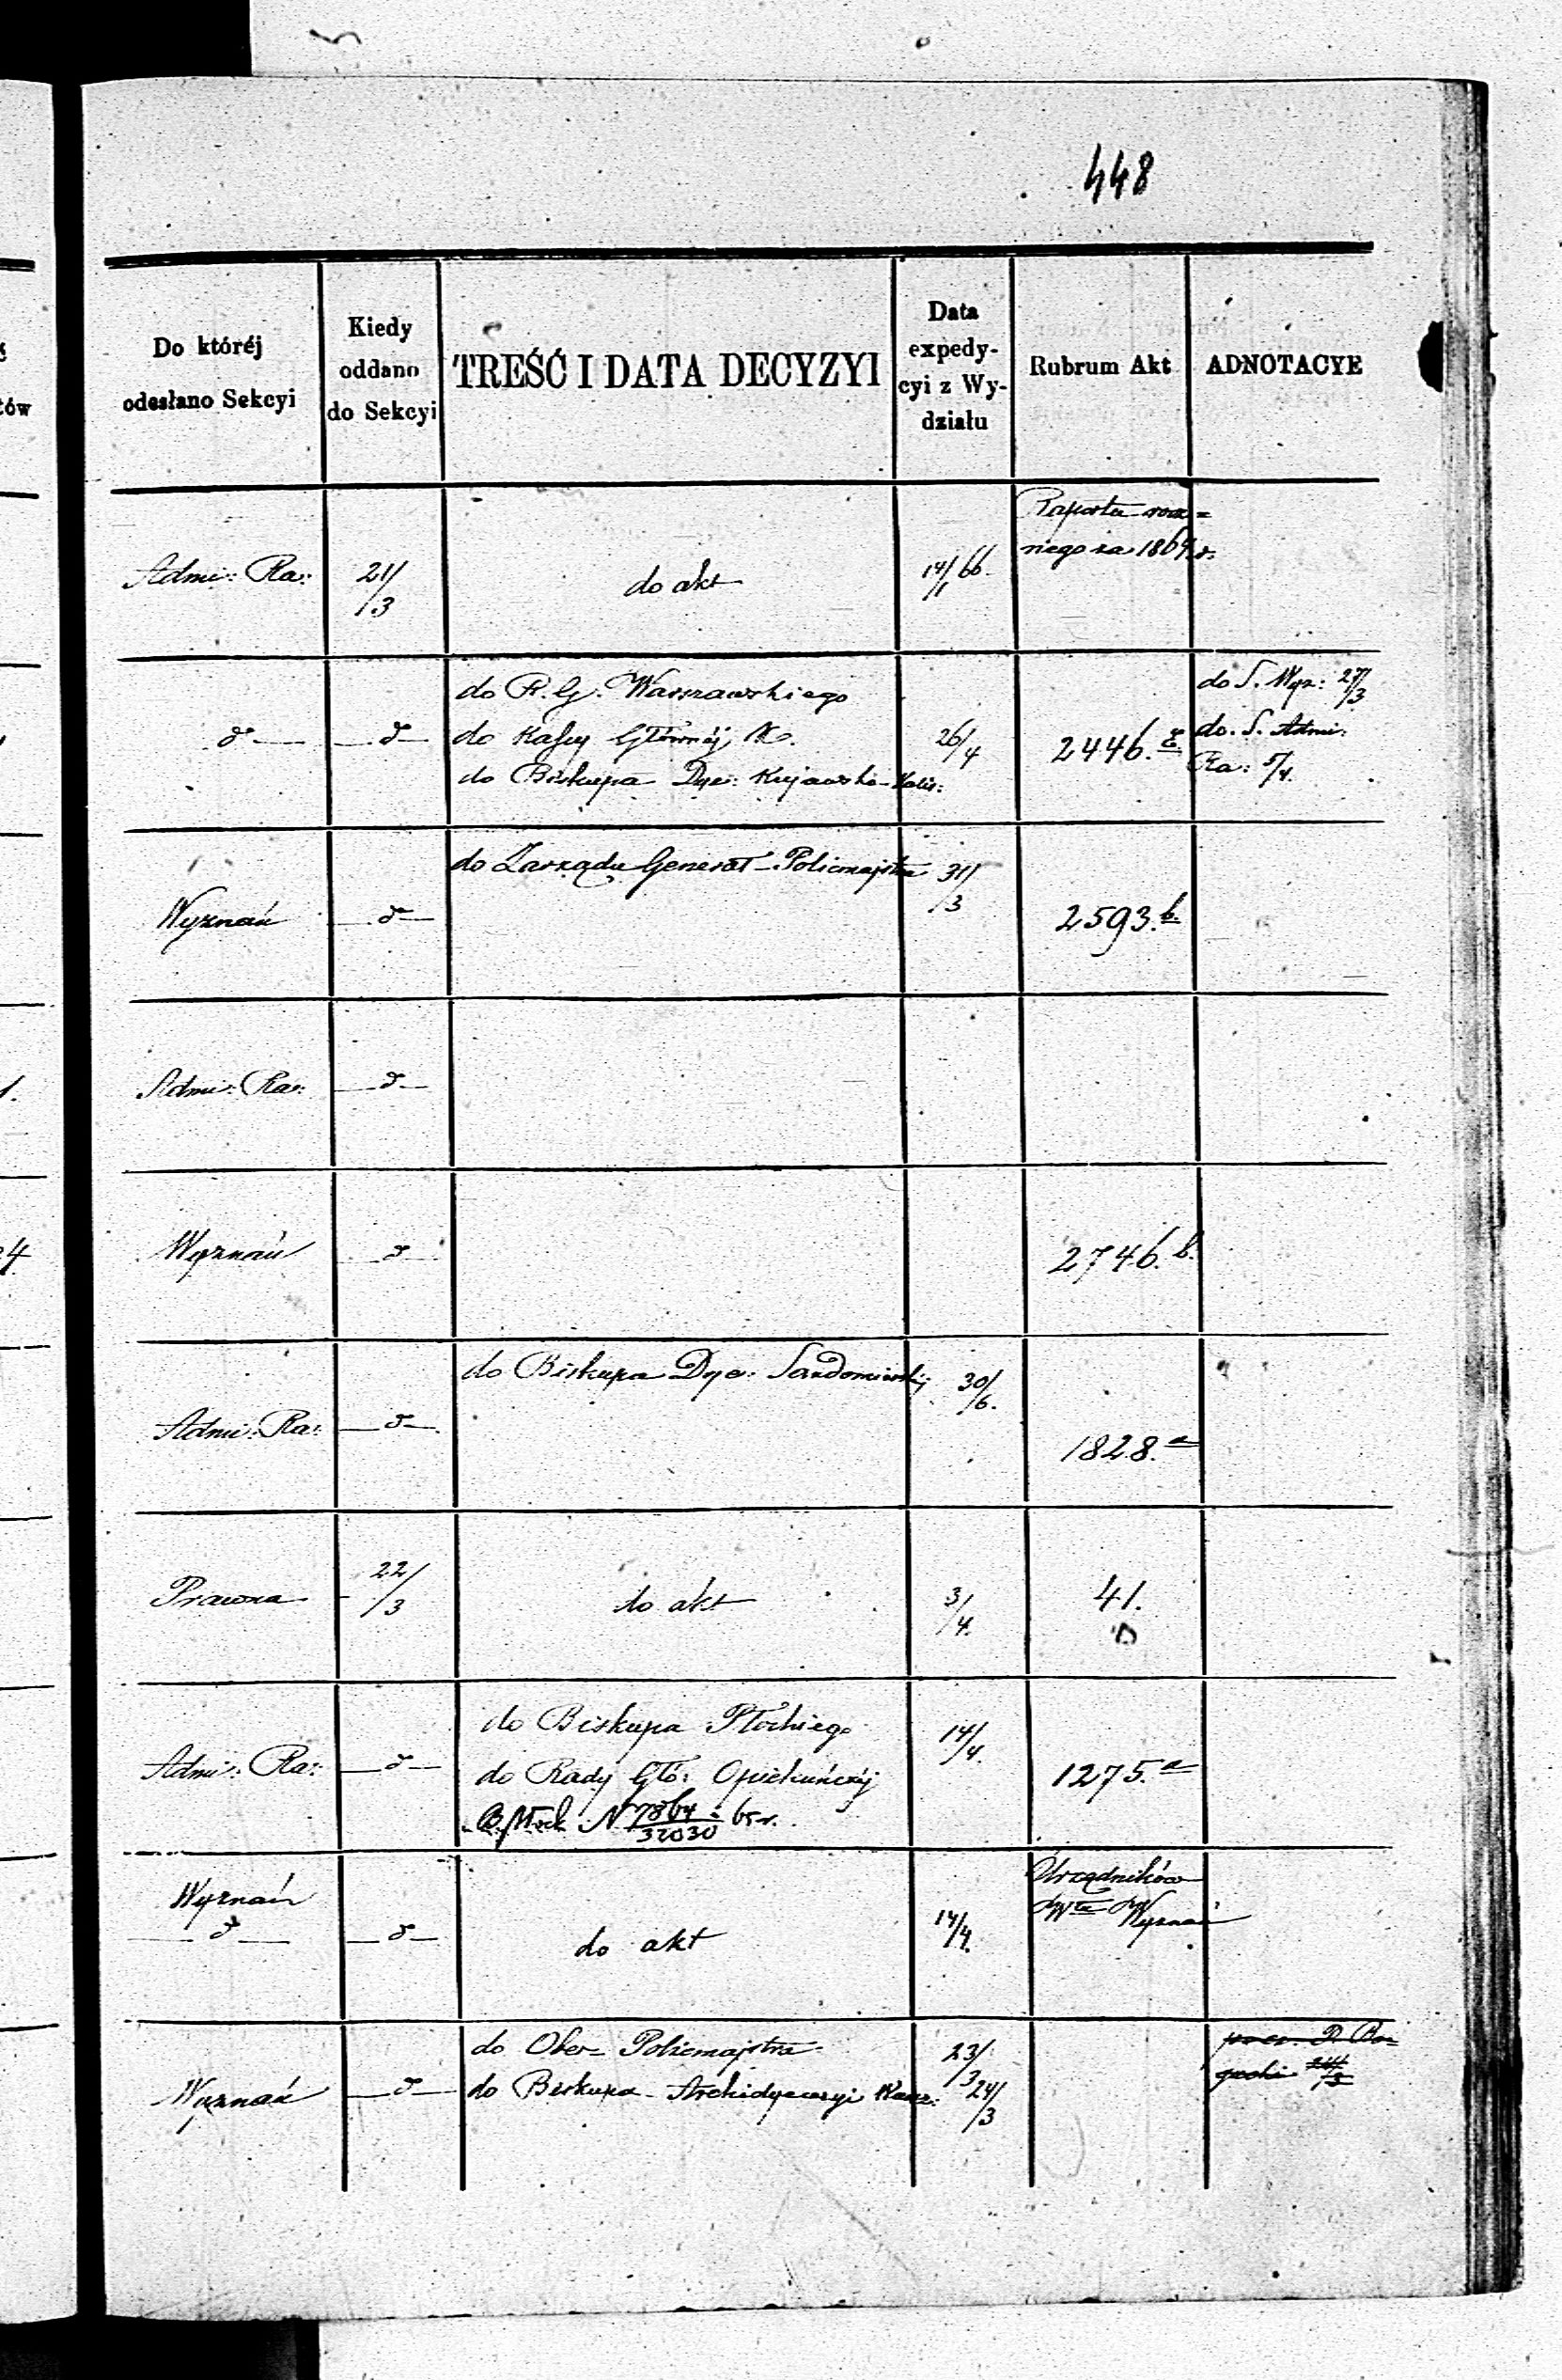 448
Do któréj odesłano Sekcyi
Kiedy oddano do Sekcyi
TREŚĆ I DATA DECYZYI
Data expedy-cyi z Wy-działu
Rubrum Akt
ADNOTACYE
Admi: Ra: 21/3 do akt 14/1 66.
Raporta
niego za 1864 r.
d d
do R. G. Warszawskiego
do Kassy Głównéj K.
do Biskupa Dye: Kujawsko-Kalis:
26/4
2446.
do S. Wyz: 27/3
do S. Admi:
Ra: 5/4.
Wyznań d
do Zarządu Generał-Policmajstra 31/3
2593.b.
Admi: Ra: d
Wyznań d 2746.b.
Admi: Ra: d
do Biskupa Dye: Sandomierskiéj 30/6.
1828.a
Prawna 22/3 do akt 3/4. 41.
Admi: Ra: d
do Biskupa Płockiego 14/4.
do Rady Głó: Opiekuńczéj
N 7864/32030 65 r.
1275.a
Wyznań
d d
do akt 14/4.
Urzędników
Wyznań
Wyznań d
do Ober Policmajstra 23/3
do Biskupa Archidyecezyi Warsz: 24/3